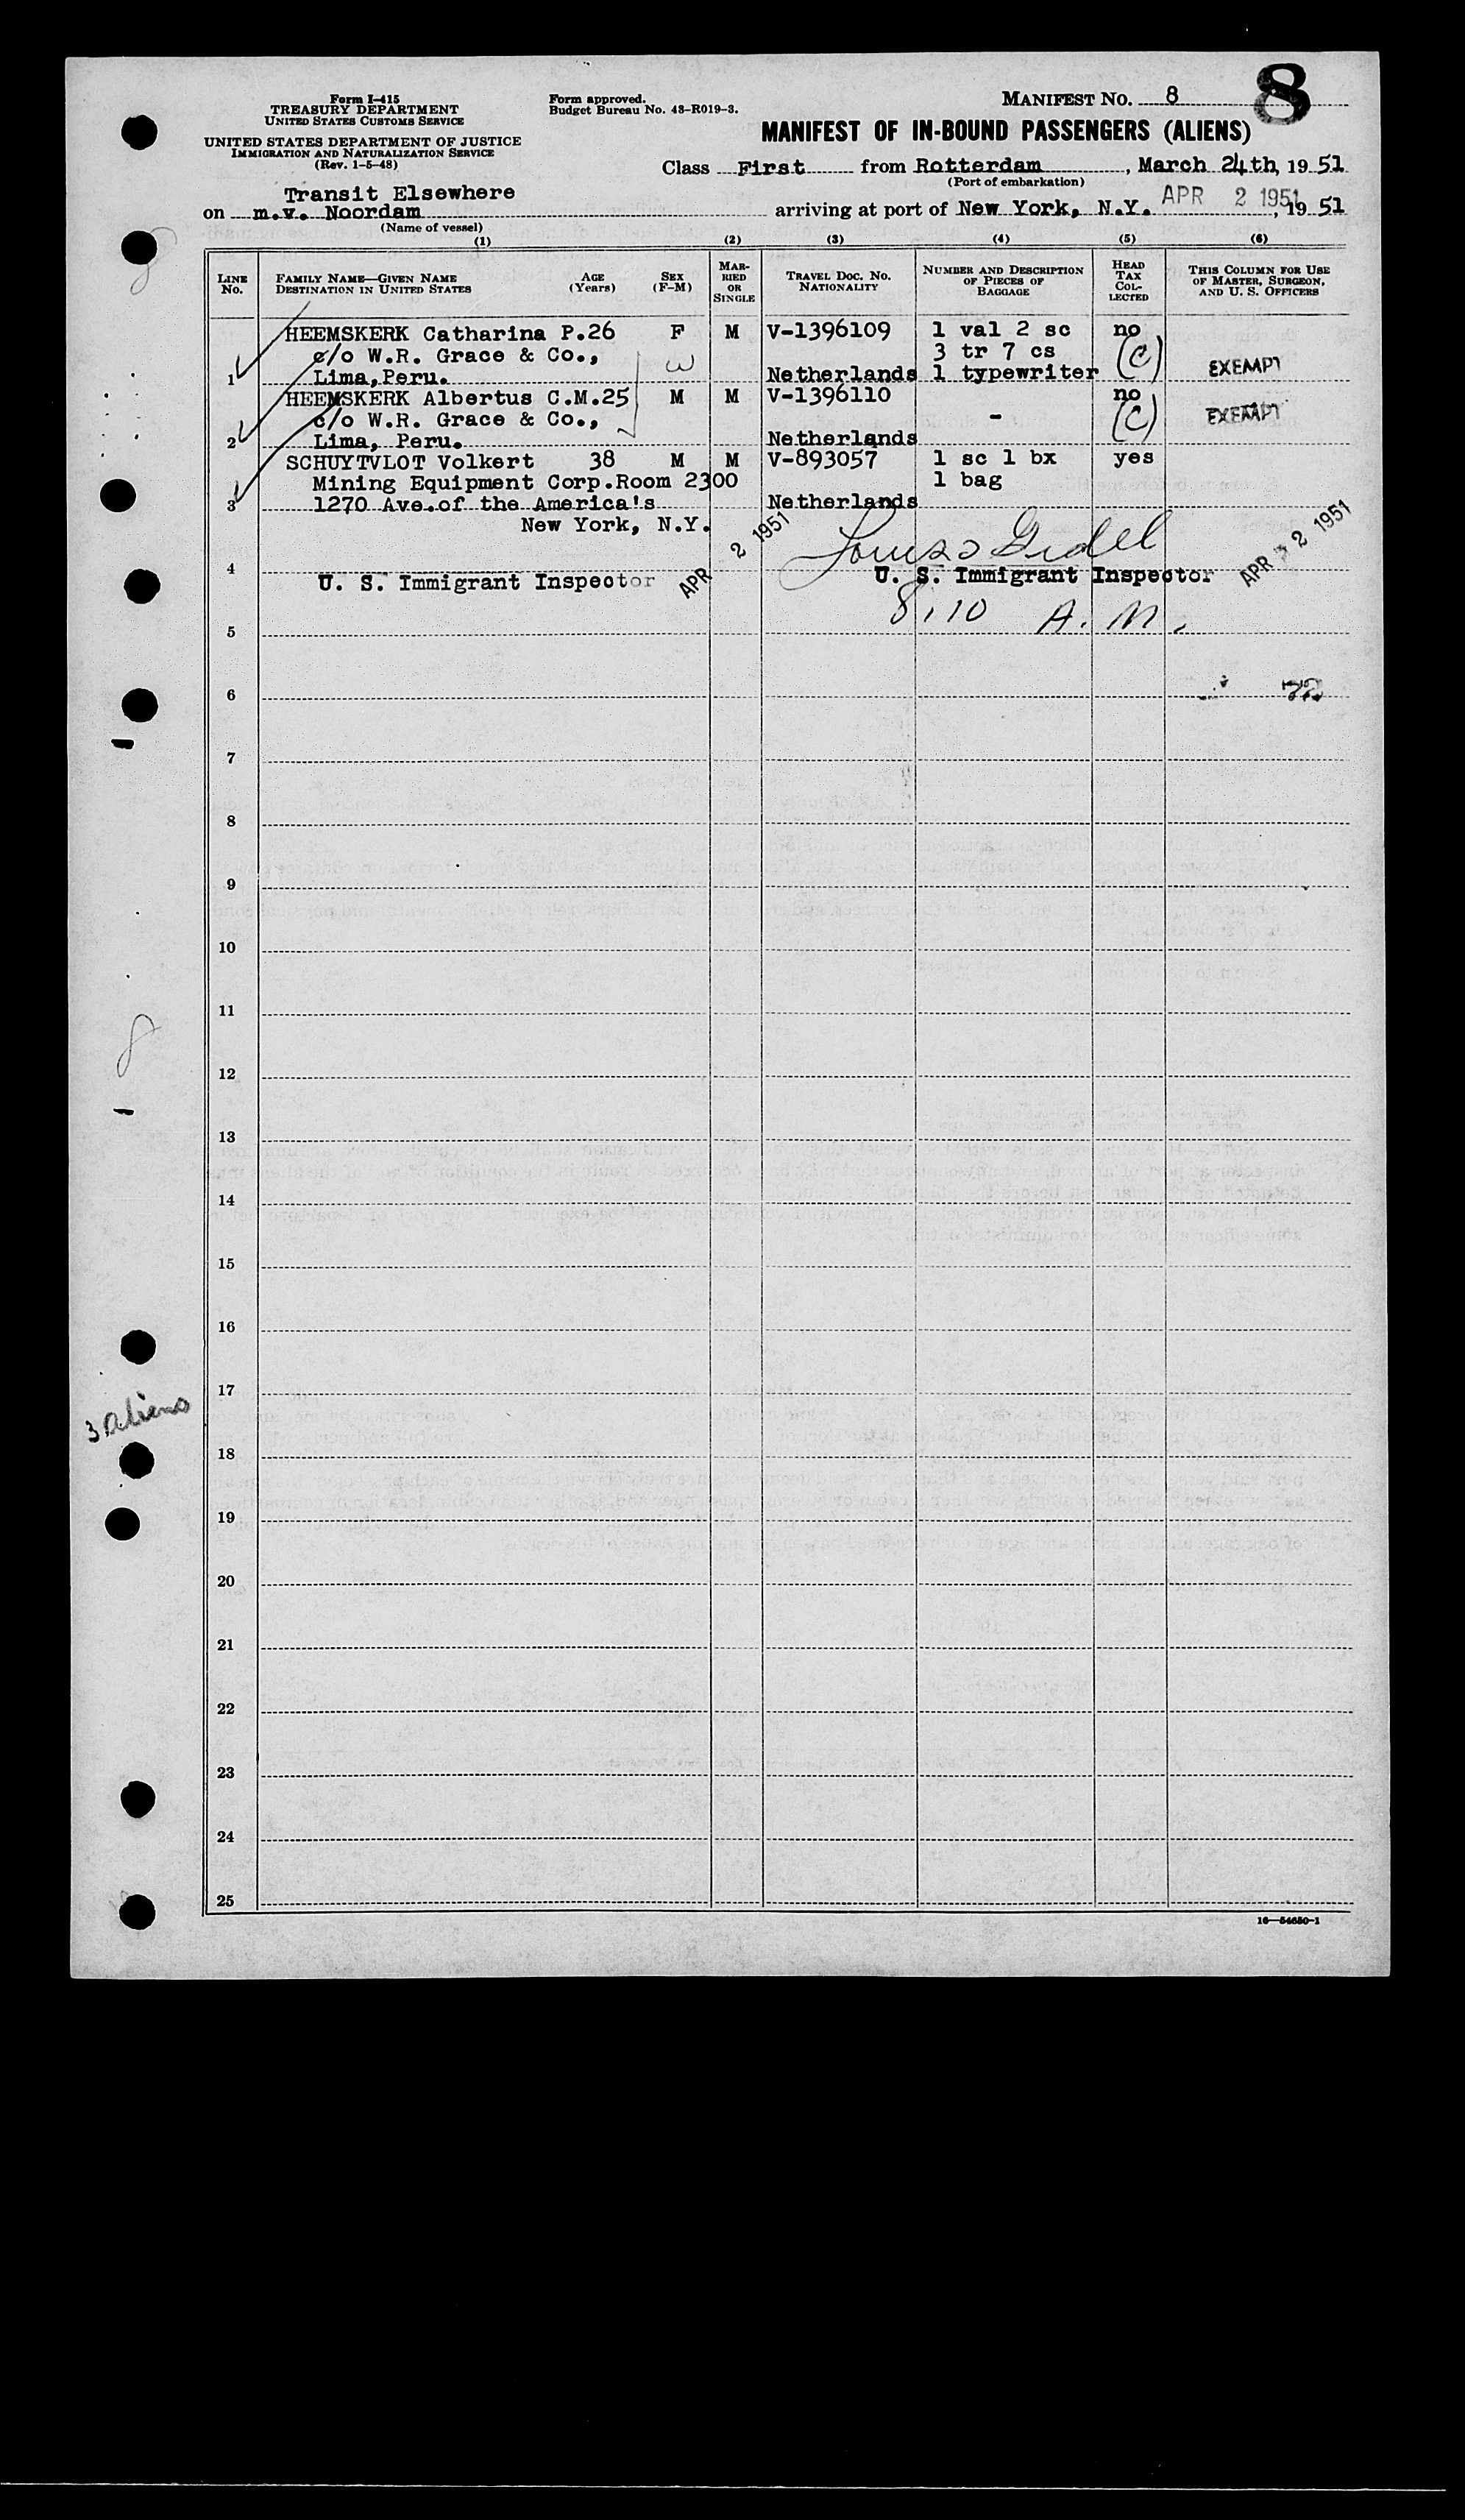 Form I-415
TREASURY DEPARTMENT
UNITED STATES CUSTOMS SERVICE
UNITED STATES DEPARTMENT OF JUSTICE
IMMIGRATION AND NATURALIZATION SERVICE
(Rev. 1-5-48)
Form approved.
Budget Bureau No. 43-R019-3.
MANIFEST NO. 8
8
MANIFEST OF IN-BOUND PASSENGERS (ALIENS)
Class First from Rotterdam, March 24th, 19 51
(Port of embarkation)
Transit Elsewhere
on m.v. Noordam arriving at port of New York, N.Y. APR 2 1951, 19 51
(Name of vessel)
(1) (2) (3) (4) (5) (6)
LINE No. FAMILY NAME—GIVEN NAME DESTINATION IN UNITED STATES AGE (Years) SEX (F-M) MARRIED OR SINGLE TRAVEL DOC. NO. NATIONALITY NUMBER AND DESCRIPTION OF PIECES OF BAGGAGE HEAD TAX COLLECTED THIS COLUMN FOR USE OF MASTER, SURGEON, AND U. S. OFFICERS
HEEMSKERK Catharina P.26 F M V-1396109 1 val 2 sc no
c/o W.R. Grace & Co., 3 tr 7 cs (C)
1 Lima,Peru. Netherlands 1 typewriter EXEMPT
HEEMSKERK Albertus C.M.25 M M V-1396110 no
c/o W.R. Grace & Co., - (C) EXEMPT
2 Lima, Peru. Netherlands
SCHUYTVLOT Volkert 38 M M V-893057 1 sc 1 bx yes
Mining Equipment Corp.Room 2300 1 bag
3 1270 Ave.of the America's Netherlands
New York, N.Y.
APR 2 1951
APR 2 1951
4 U. S. Immigrant Inspector U. S. Immigrant Inspector
8:10 A.M.
5
6
7
8
9
10
11
12
13
14
15
16
17
3 aliens
18
19
20
21
22
23
24
25
8
16—54650-1